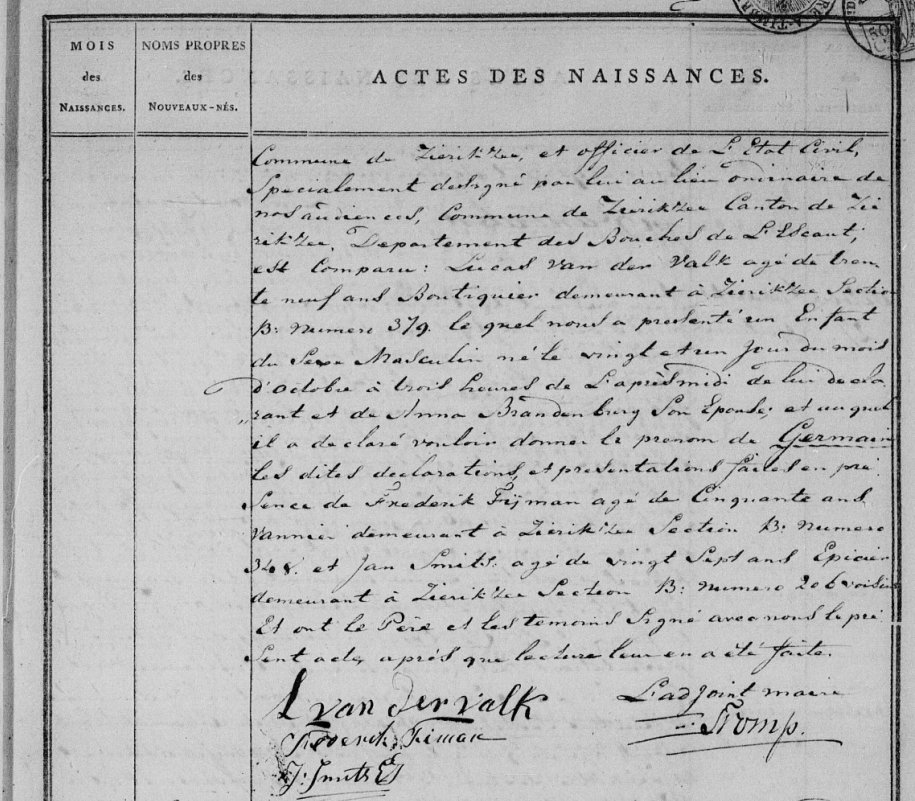 MOIS
des
NAISSANCES.
NOMS PROPRES
des
NOUVEAUX-NÉS.
ACTES DES NAISSANCES.
Commune de Zierikzee, et officier de L'Etat Civil,
Specialement designé par lui au lieu ordinaire de
nos audiences, Commune de Zierikzee Canton de Zie
rikzee, Departement des Bouches de L'Escaut;
est Comparu: Lucas Van der Valk agé de tren
te neuf ans Boutiquier demeurant à Zierikzee Section
B: Numero 379. le quel nous a presenté un Enfant
du Sexe Masculin né le vingt et un Jour du mois
d'Octobre à trois heures de L'aprèsmidi de lui decla
rant et de Anna Brandenburg Son Epouse; et auquel
il a declaré vouloir donner le prenom de Germain
les dites declarations, et presentations faites en pré
Sence de Frederik Fijman agé de Cinquante ans
Vannier demeurant à Zierikzee Section B: Numero
348. et Jan Smits. agé de vingt Sept ans Epicier
demeurant à Zierikzee Section B: numero 206 voisins
Et ont le Père et les temoins Signé avec nous le pré
Sent acte, après que lecture leur en a été faite.
L van der valk
L'adjoint maire
Frederik Fiman
J: Smits